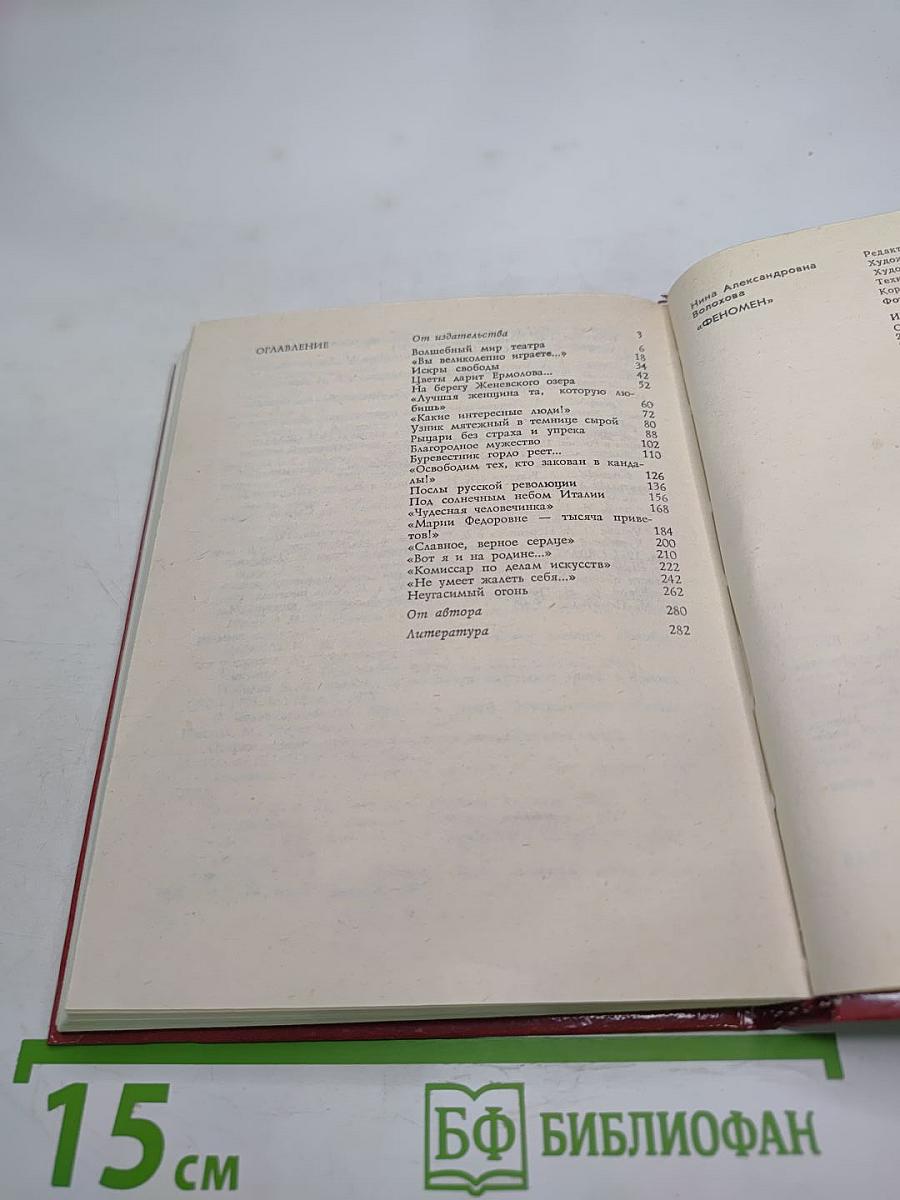 ОГЛАВЛЕНИЕ
От издательства 3
Волшебный мир театра 6
«Вы великолепно играете...» 18
Искры свободы 34
Цветы дарит Ермолова... 42
На берегу Женевского озера 52
«Лучшая женщина та, которую лю-
бишь» 60
«Какие интересные люди!» 72
Узник мятежный в темнице сырой 80
Рыцари без страха и упрека 88
Благородное мужество 102
Буревестник гордо реет... 110
«Освободим тех, кто закован в канда-
лы!» 126
Послы русской революции 136
Под солнечным небом Италии 156
«Чудесная человечинка» 168
«Марии Федоровне — тысяча приве-
тов!» 184
«Славное, верное сердце» 200
«Вот я и на родине...» 210
«Комиссар по делам искусств» 222
«Не умеет жалеть себя...» 242
Неугасимый огонь 262
От автора 280
Литература 282
Нина Александровна
Волохова
«ФЕНОМЕН»
Редакт
Худож
Худо
Техн
Кор
Фо
И
С
2
15 см
БФ БИБЛИОФАН